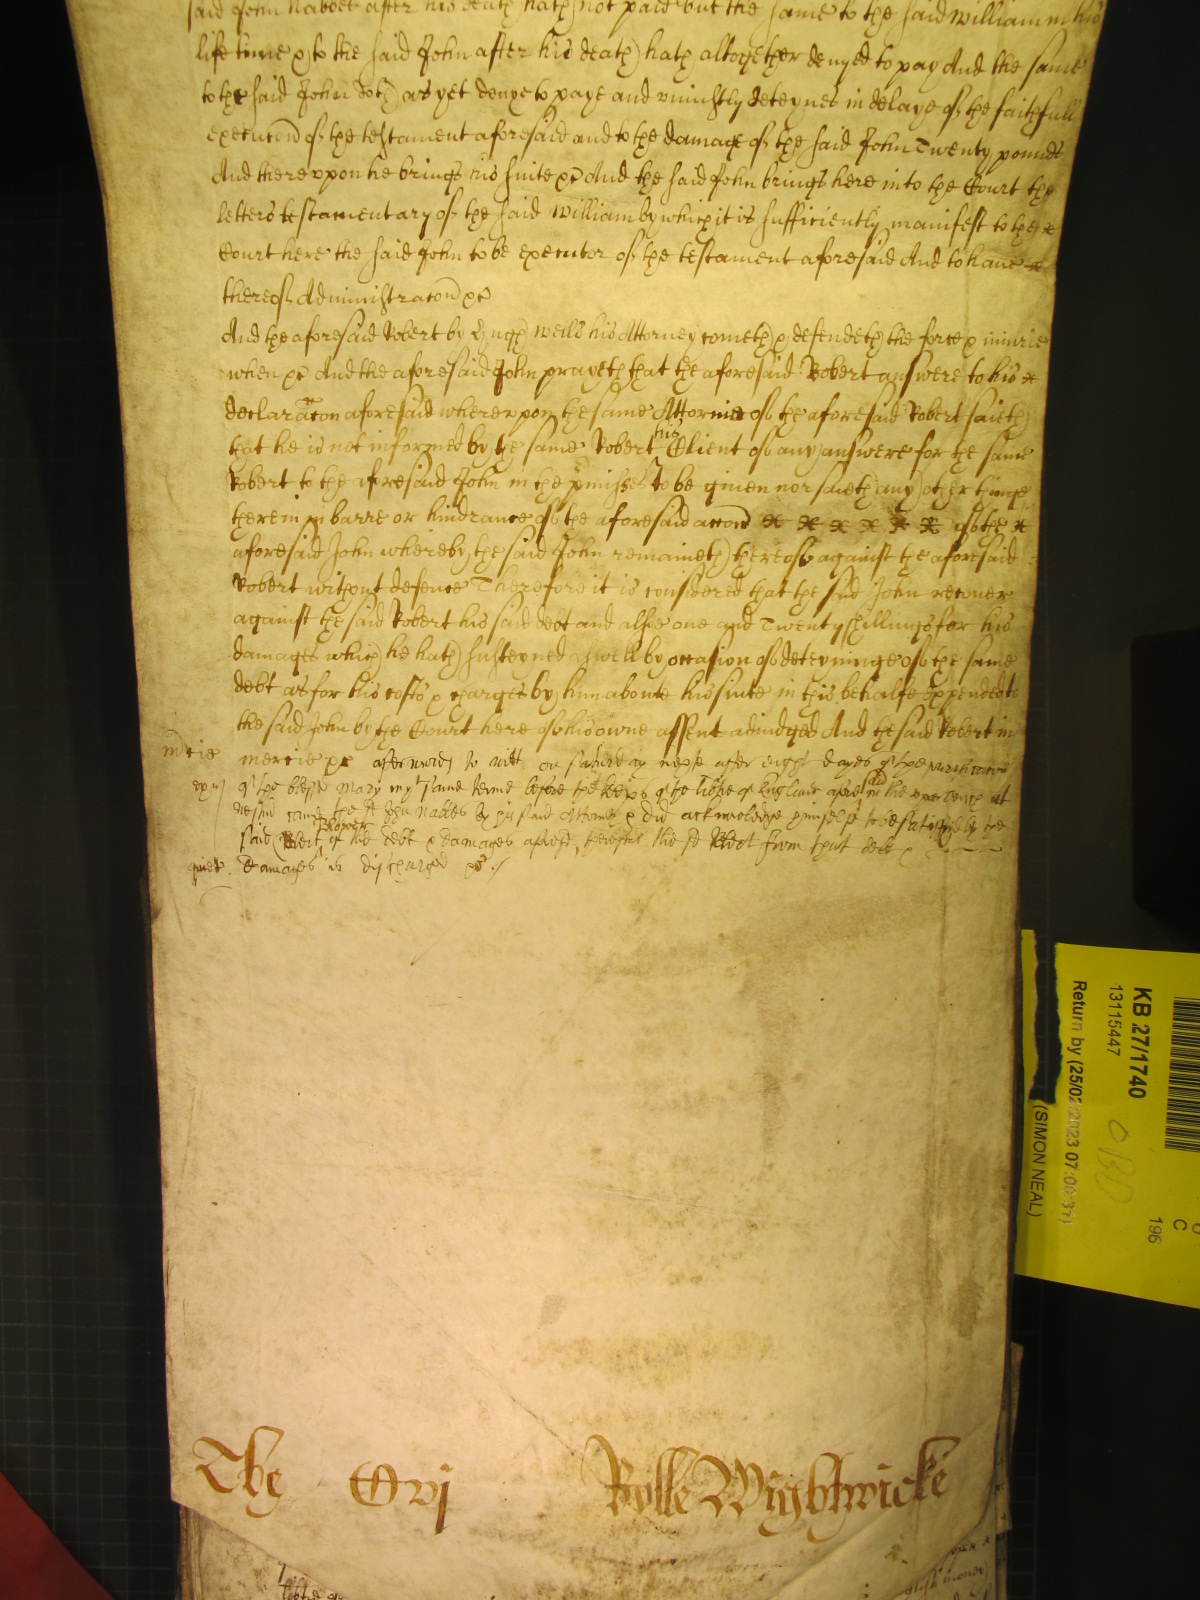 said John Nabbes after his death hath not paid but the same to the said William in his
life time & to the said John after his death hath altogether denyed to pay And the same
to the said John doth as yet denye to paye and uniustly deteynes in delaye of the faithfull
execucon of the testament aforesaid and to the damage of the said John Twenty pounds
And thereupon he brings his suite &c And the said John brings here into the Court the
letters testamentary of the said William by which it is sufficiently manifest to the
Court here the said John to be executor of the testament aforesaid And to have
thereof Administracon &c
And the aforesaid Robert by Hugh Wells his Attorney cometh & defendeth the force & iniurie
when &c And the aforesaid John prayeth that the aforesaid Robert answere to his
declaracon aforesaid whereupon the same Attornie of the aforesaid Robert saieth
that he is not informed by the same Robert his Client of any answere for the same
Robert to the aforesaid John in the pmisses to be given nor saieth any other thinge
therein in barre or hindrance of the aforesaid accon of the
aforesaid John whereby the said John remaineth thereof against the aforesaid
Robert without defence Therefore it is considered that the said John recover
against the said Robert his said debt and alsoe one and Twenty shillings for his
damages which he hath susteyned aswell by occasion of deteyninge of the same
debt as for his costs & charges by him aboute his suite in this behalfe expended to
the said John by the Court here of his owne assent adiudged And the said Robert in
mcie mercie &c afterwards to witt on saturday next after eight dayes of the purificacon
of the blessed Mary this same terme before the keeps of the libtie of England aforesaid
came the sd John Nabbes by his said Attorney & did acknowledge himselfe to be satisfied by the
said Robert of the debt & damages aforesd therefore the sd Robt from that debt &
quiet. Damages is discharged &c
The Cvj Rolle Wightwicke
KB 27/1740
13115447
Return by (25/02/2023 07:00:31)
(SIMON NEAL)
196
C